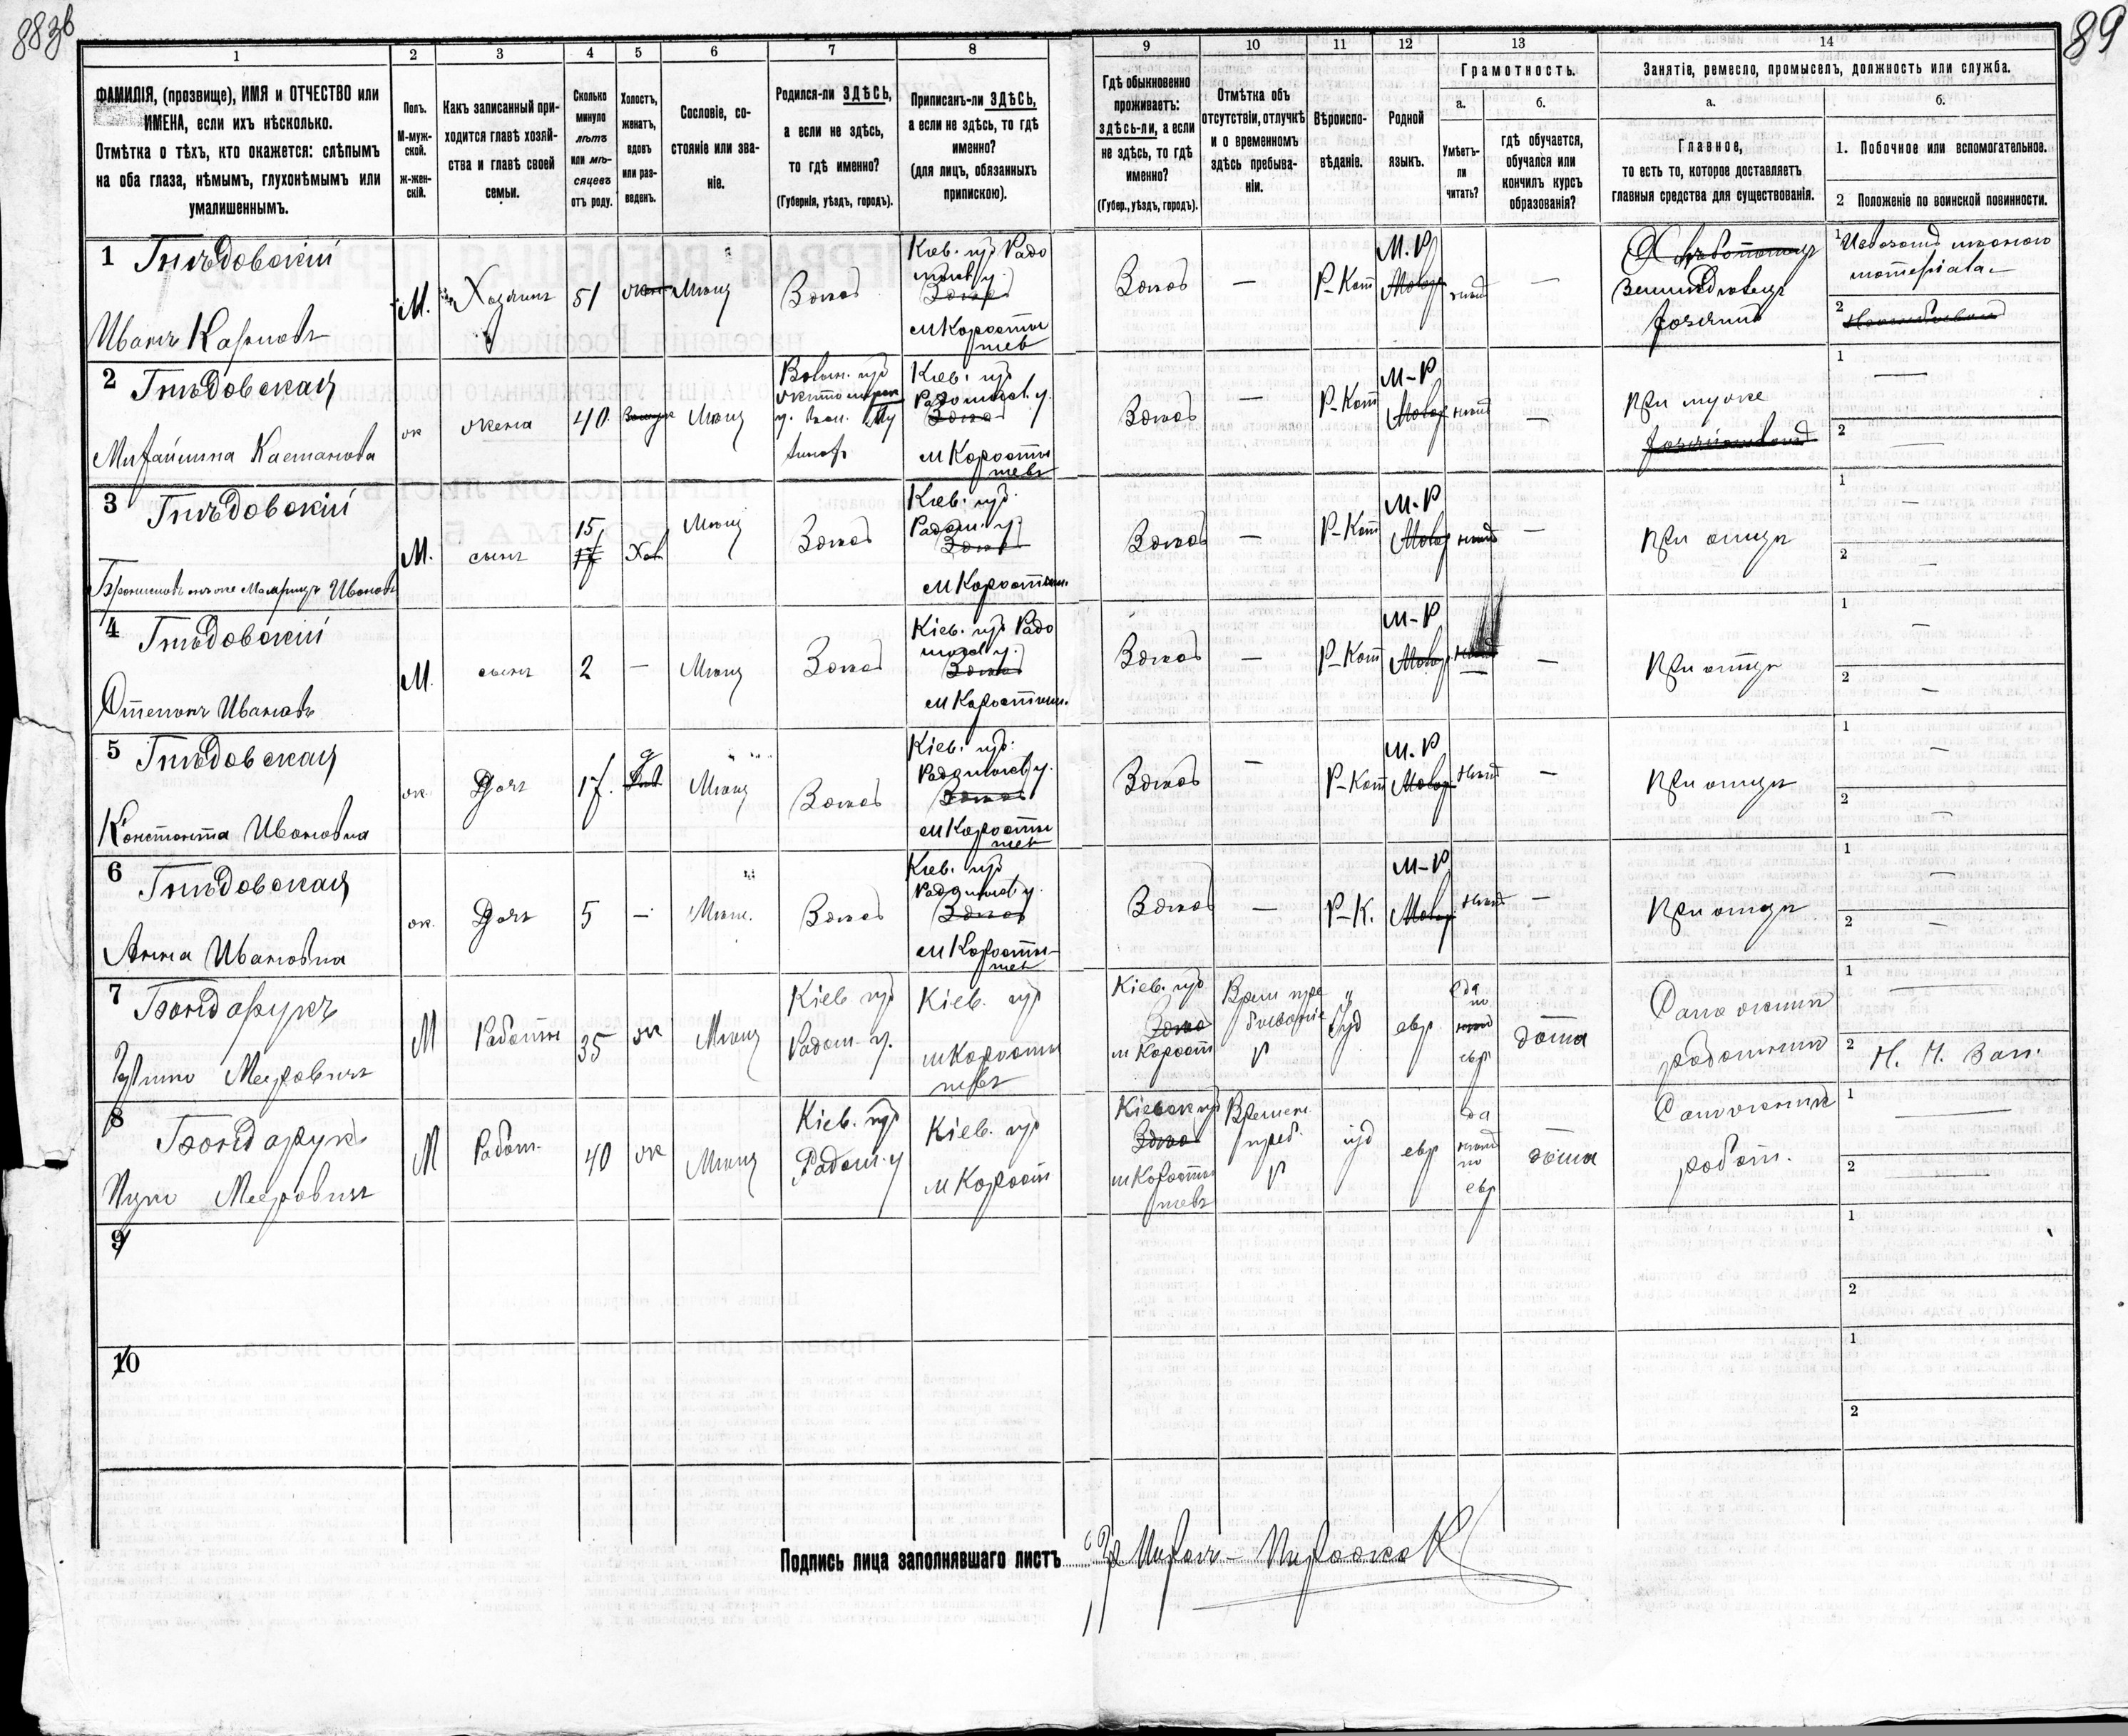 883б
89
1 2 3 4 5 6 7 8 9 10 11 12 13 14
ФАМИЛІЯ, (прозвище), ИМЯ и ОТЧЕСТВО или
ИМЕНА, если ихъ нѣсколько.
Отмѣтка о тѣхъ, кто окажется: слѣпымъ
на оба глаза, нѣмымъ, глухонѣмымъ или
умалишеннымъ.
Полъ.
М-муж-
ской.
ж-жен-
скій.
Какъ записанный при-
ходится главѣ хозяй-
ства и главѣ своей
семьи.
Сколько
минуло
лѣтъ
или мѣ-
сяцевъ
отъ роду.
Холостъ,
женатъ,
вдовъ
или раз-
веденъ.
Сословіе, со-
стояніе или зва-
ніе.
Родился-ли ЗДѢСЬ,
а если не здѣсь,
то гдѣ именно?
(Губернія, уѣздъ, городъ).
Приписанъ-ли ЗДѢСЬ,
а если не здѣсь, то гдѣ
именно?
(для лицъ, обязанныхъ
припискою).
Гдѣ обыкновенно
проживаетъ:
здѣсь-ли, а если
не здѣсь, то гдѣ
именно?
(Губер., уѣздъ, городъ).
Отмѣтка объ
отсутствіи, отлучкѣ
и о временномъ
здѣсь пребыва-
ніи.
Вѣроиспо-
вѣданіе.
Родной
языкъ.
Грамотность.
а.
Умѣетъ-
ли
читать?
б.
гдѣ обучается,
обучался или
кончилъ курсъ
образованія?
Занятіе, ремесло, промыселъ, должность или служба.
а.
Главное,
то есть то, которое доставляетъ
главныя средства для существованія.
б.
1. Побочное или вспомогательное.
2 Положеніе по воинской повинности.
1 Гнѣдовскій
Иванъ Карповъ
М.
Хозяинъ
51
Мѣщ
Здѣсь
Кіев. губ Радо
мысл у.
Здѣсь
м Коросты
шев
Здѣсь
—
Р-Кат
М.Р
нѣтъ
—
Земледѣлецъ
хозяинъ
1
2
2 Гнѣдовская
Михайлина Каетанова
ж
жена
40.
Мѣщ
Волын. губ
Житомірск
у.
Кіев. губ
Радомысл у.
Здѣсь
м Коросты
шевъ
Здѣсь
—
Р-Кат
М-Р
нѣтъ
—
При мужѣ
1 —
2 —
3 Гнѣдовскій
Ивановъ
М.
сынъ
15
17
Хол
Мѣщ
Здѣсь
Кіев. губ.
Радом. у.
Здѣсь
м Коростыш.
Здѣсь
—
Р-Кат
М.Р
нѣтъ
—
При отцѣ
1 —
2 —
4 Гнѣдовскій
Степанъ Ивановъ
М.
сынъ
2
—
Мѣщ
Здѣсь
Кіев. губ Радо
мысл у.
Здѣсь
м Коростыш.
Здѣсь
—
Р-Кат
М-Р
—
—
При отцѣ
1 —
2 —
5 Гнѣдовская
Константа Ивановна
ж.
Дочь
17.
Мѣщ
Здѣсь
Кіев. губ.
Радомысл у.
Здѣсь
м Коросты
шев
Здѣсь
—
Р-Кат
М.Р
нѣтъ
—
При отцѣ
1 —
2 —
6 Гнѣдовская
Анна Ивановна
ж.
Дочь
5
—
Мѣщ.
Здѣсь
Кіев. губ
Радомысл у.
Здѣсь
м Коросты-
шев
Здѣсь
—
Р-К.
М-Р
нѣтъ
—
При отцѣ
1 —
2 —
7 Бондарукъ
Мееровичъ
М
Работн
35
ж
Мѣщ
Кіев губ
Радом. у.
Кіев. губ
м Коросты
шевъ
Кіев. губ
Здѣсь
м Корост
Врем пре
бываніе
Р
Іуд
евр
да
по
евр
дома
Сапожник
работник
1 —
2 Н. Ч. Зап.
8 Бондарук
Мееровичъ
М
Работ.
40
ж
Мѣщ
Кіев. губ
Радом. у
Кіев. губ
м Корост
Кіевск губ
Здѣсь
м Коросты
шевъ
Времен.
преб.
Р
іуд
евр
да
по
евр
дома
Сапожник
работ.
1 —
2 —
9
1
2
10
1
2
Подпись лица заполнявшаго листъ